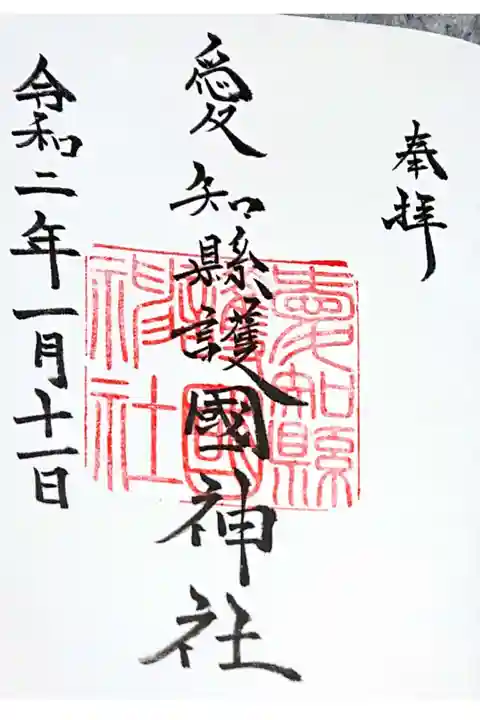 奉拝
愛知縣護國神社
愛知縣
護國
神社
令和二年一月十一日